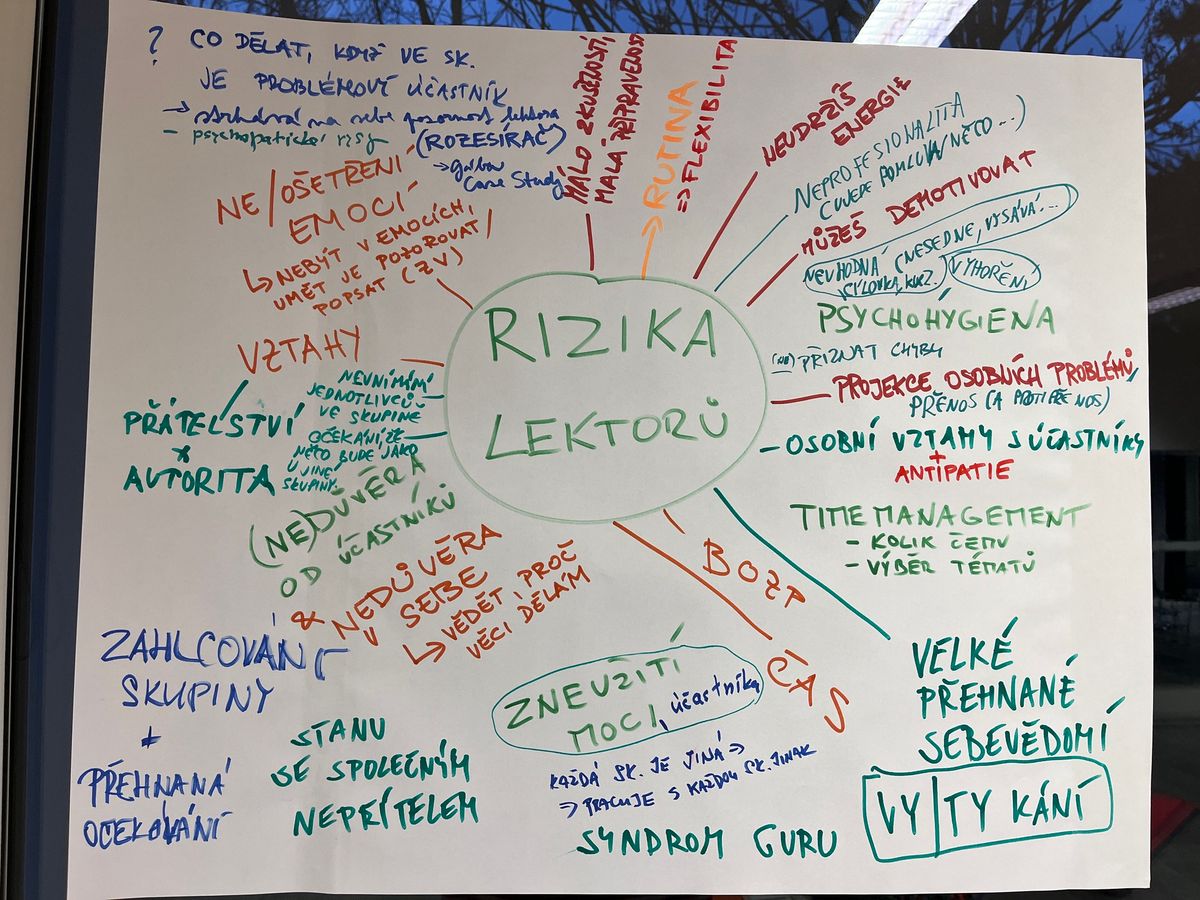 ? CO DĚLAT, KDYŽ VE SK.
JE PROBLÉMOVÝ ÚČASTNÍK
→ strhává na sebe pozornost lektora
- psychopatické rysy
(ROZESÍRAČ)
→ Case Study
NE/OŠETŘENÍ
EMOCÍ
↳ NEBÝT V EMOCÍCH,
UMĚT JE POZOROVAT/
POPSAT (ZV)
MÁLO ZKUŠENOSTÍ,
MALÁ PŘIPRAVENOST
→ RUTINA
⇒ FLEXIBILITA
NEUDRŽÍŠ
ENERGIE
NEPROFESIONALITA
(UJEDE POMLUVA/NĚCO...)
MŮŽEŠ DEMOTIVOVAT
NEVHODNÁ (NESEDNE, VYSÁVÁ...
CÍLOVKA, KURZ.
VYHOŘENÍ
PSYCHOHYGIENA
(NE) PŘIZNAT CHYBU
PROJEKCE OSOBNÍCH PROBLÉMŮ,
PŘENOS (A PROTIPŘENOS)
- OSOBNÍ VZTAHY S ÚČASTNÍKY
+
ANTIPATIE
TIME MANAGEMENT
- KOLIK ČEMU
- VÝBĚR TÉMATŮ
RIZIKA
LEKTORŮ
VZTAHY
PŘÁTELSTVÍ
x
AUTORITA
NEVNÍMÁM
JEDNOTLIVCŮ
VE SKUPINĚ
OČEKÁNÍ, ŽE
NĚCO BUDE JAKO
U JINÉ
SKUPINY.
(NE)DŮVĚRA
OD ÚČASTNÍKŮ
& NEDŮVĚRA
V SEBE
↳ VĚDĚT, PROČ
VĚCI DĚLÁM
BOZP
ČAS
ZAHLCOVÁNÍ
SKUPINY
+
PŘEHNANÁ
OČEKÁVÁNÍ
STANU
SE SPOLEČNÝM
NEPŘÍTELEM
ZNEUŽITÍ
MOCI, účastníka
KAŽDÁ SK. JE JINÁ ⇒
⇒ PRACUJE S KAŽDOU SK. JINAK
SYNDROM GURU
VELKÉ
PŘEHNANÉ
SEBEVĚDOMÍ
VY|TY KÁNÍ